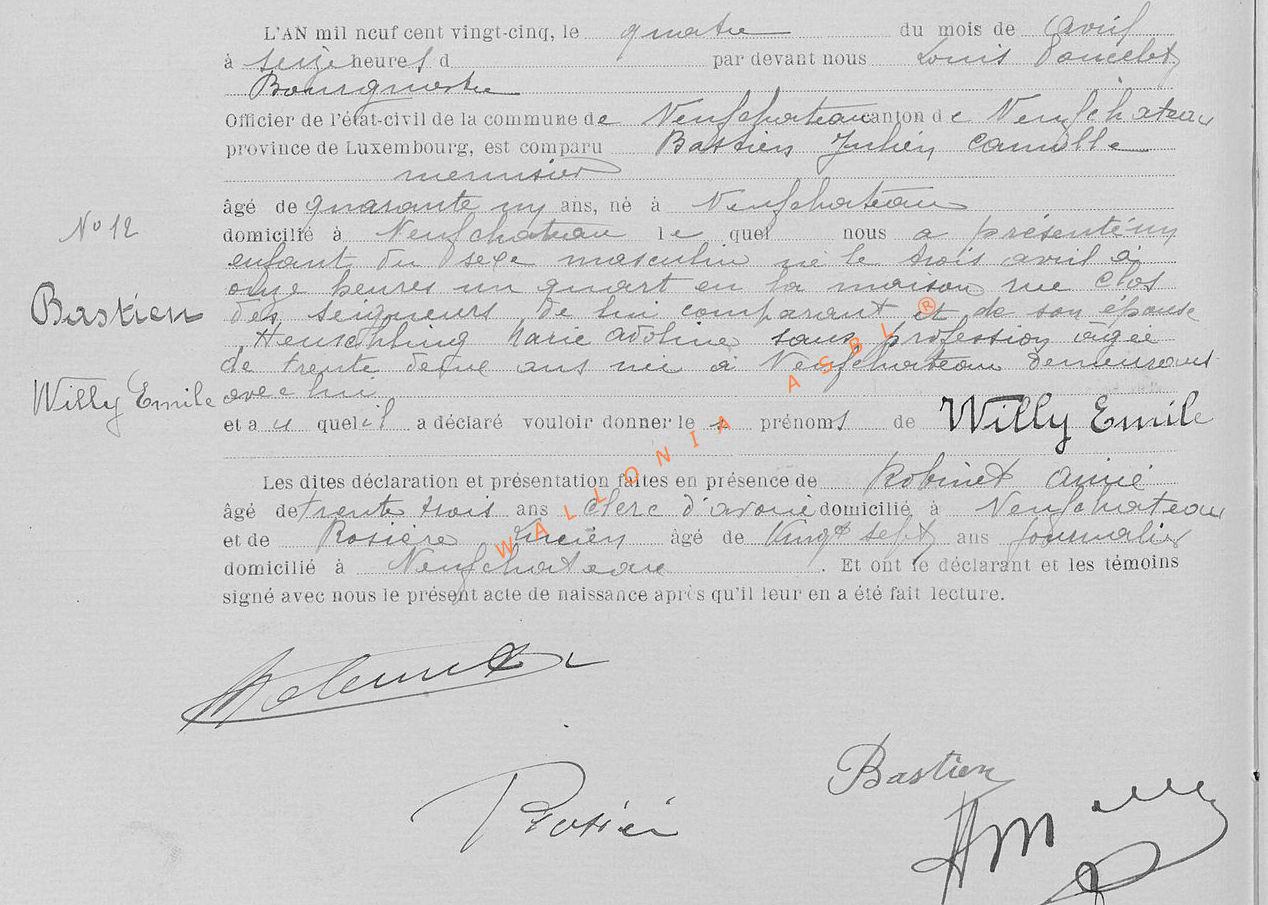 L'AN mil neuf cent vingt-cinq, le quatre du mois de avril
à seize heures d par devant nous Louis Poncelet
Bourgmestre
Officier de l'état-civil de la commune de Neufchateau canton de Neufchateau
province de Luxembourg, est comparu Bastien Julien Camille
menuisier
âgé de quarante un ans, né à Neufchateau
domicilié à Neufchateau le quel nous a présenté un
No 12
enfant du sexe masculin né le trois avril à
onze heures un quart en la maison rue Clos
Bastien
des seigneurs de lui comparant et de son épouse
Heuschling Marie Adeline sans profession âgée
de trente deux ans née à Neufchateau demeurant
Willy Emile
avec lui
et a u quel il a déclaré vouloir donner le s prénoms de Willy Emile
Les dites déclaration et présentation faites en présence de Robinet Aimé
âgé de trente trois ans clerc d'avoué domicilié à Neufchateau
et de Rosière Lucien âgé de vingt sept ans journalier
domicilié à Neufchateau . Et ont le déclarant et les témoins
signé avec nous le présent acte de naissance après qu'il leur en a été fait lecture.
WALLONIA ASBL ®
Bastien